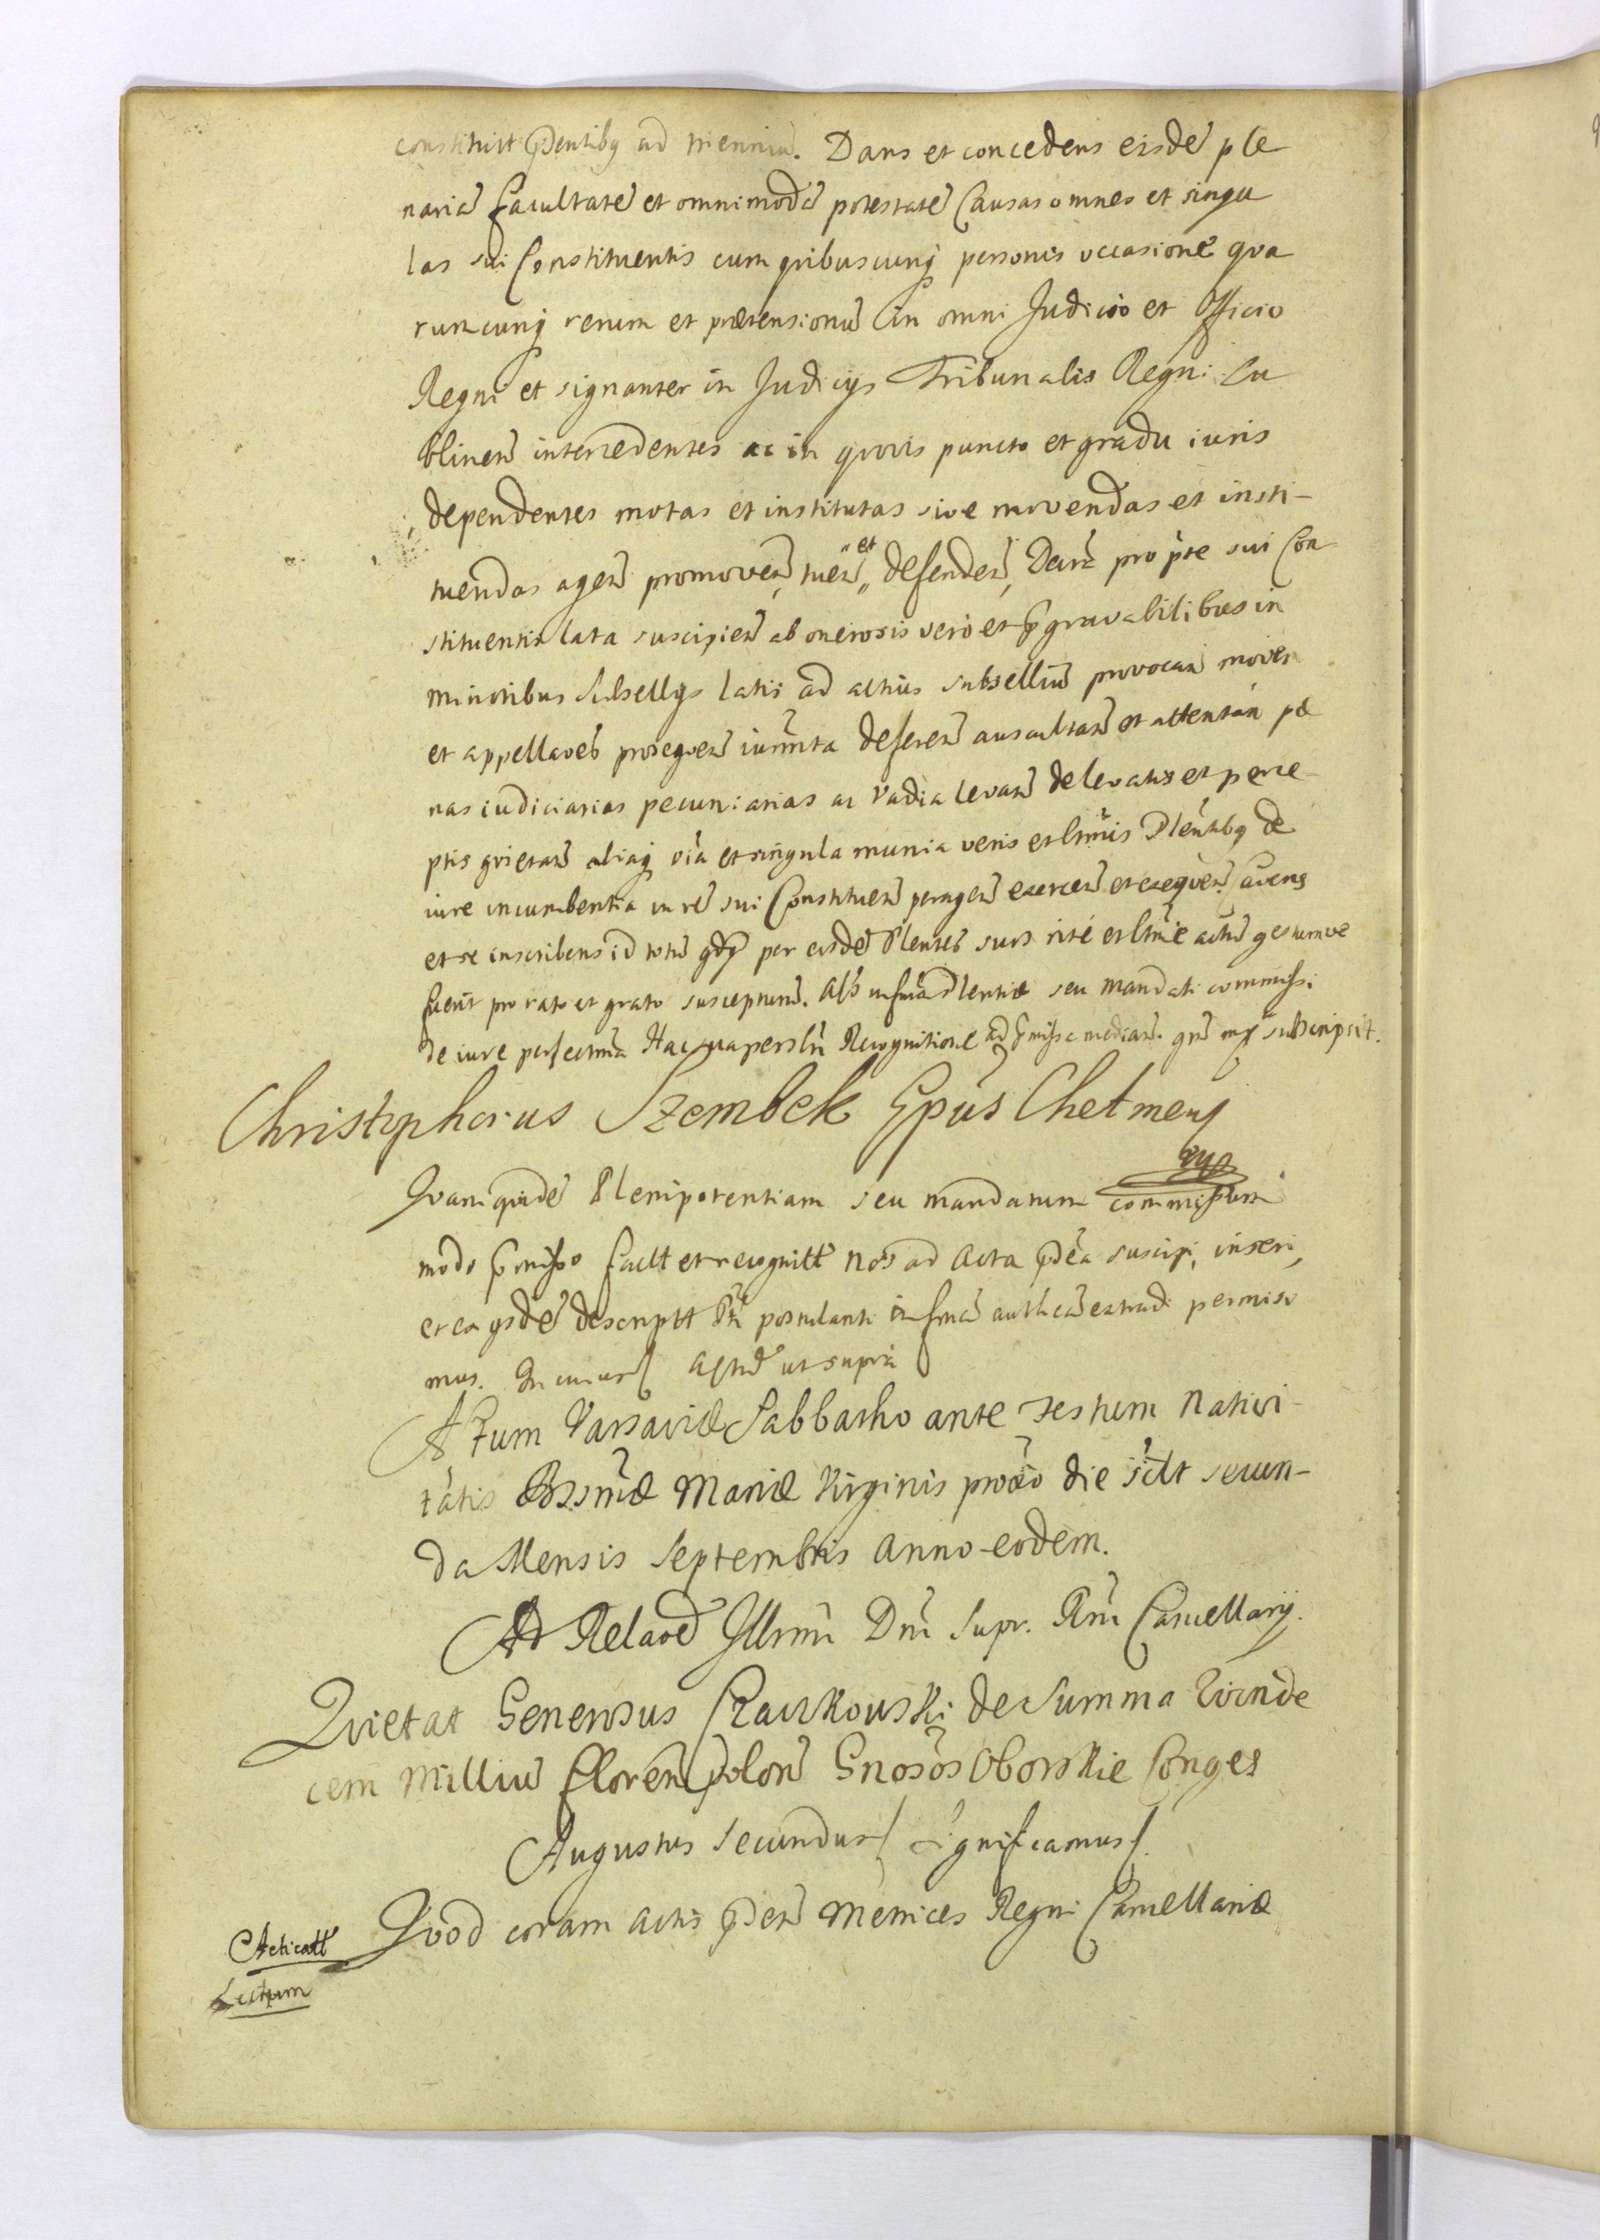 constituit Pdentibq ad triennium. Dans et concedens eisdē ple
nariā facultatē et omnimodā potestatē Causas omnes et singu
las sui Constituentis cum quibuscunq personis occasione qua
rumcunq rerum et prætensionū in omni Judicio et Officio
Regni et signanter in Judicijs Tribunalis Regni Lu
blinen intercedentes ac in quovis puncto et gradu iuris
dependentes motas et institutas sive movendas et insti-
tuendas agen promoven, tuen et defenden, Decr pro pte sui Con
stituentis lata suscipien ab onerosis vero et pgravabilibus in
minoribus Subsellijs latis ad altius subselliū provocan moven
et appellaōēs prosequen iurmta deferen auscultan et attentan pæ
nas iudiciarias pecuniarias ac Vadia levan de levatis et perce-
ptis quietan aliaq oīa et singula munia veris et ltmis Plentibq de
iure incumbentia in rē sui Constituen peragen exercen et exequen Cavens
et se inscribens id totū qdq per eosdē Plentes suos ritè et ltmè actū gestumve
fuerit pro rato et grato suscepturū. Als in forma Plentiæ seu mandati commissi
de iure perfectma Hac sua persln Recognitione ad pmissa median. qm mpp subscripsit.
Christophorus Szembek Epus Chelmens
mpp
Quam quidē Plenipotentiam seu mandatum commissum
modo pmisso factt et recognitt Nos ad Acta pdca suscipi, inseri,
et ex ijsdē descriptt Pti postulanti in forma authcā extradi permisi
mus. In cuius Actū ut supra
Actum Varsaviæ Sabbatho ante Festum Nativi-
tatis Bssmæ Mariæ Virginis proxo die sclt secun-
da Mensis Septembris Anno eodem.
Ad Relaoē Illrmi Dni Supr. Rni Cancellarij.
Quietat Generosus Czaczkowski de Summa Vinde
cem Milliū florēn polon Gnosos Oborskie Conges
Augustus Secundus Significamus
Quod coram Actis pden Metrices Regni Cancellariæ
Acticatt
Lectum